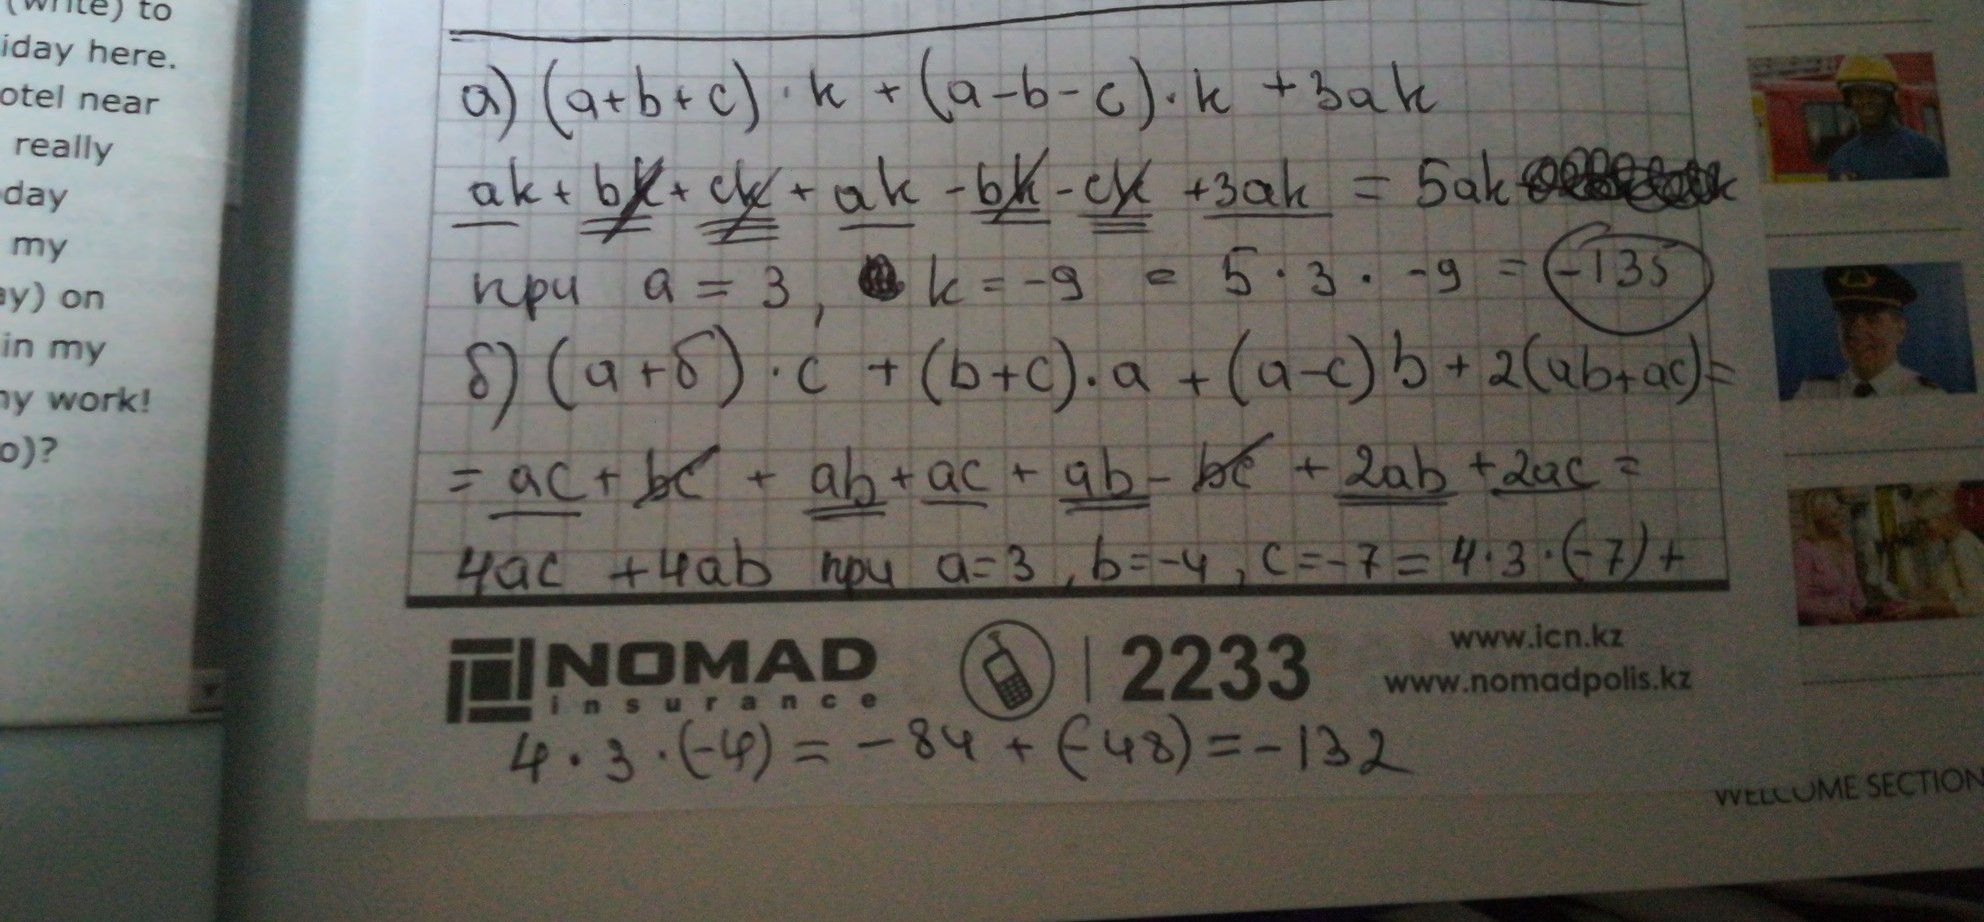 (write) to
iday here.
otel near
really
day
my
ay) on
in my
my work!
o)?
а) (a+b+c)·k + (a-b-c)·k +3ak
ak + bk + ck + ak - bk - ck +3ak = 5ak
при a = 3, k = -9 = 5·3·-9 = -135
б) (a+б)·c + (b+c)·a + (a-c)b + 2(ab+ac)=
= ac + bc + ab + ac + ab - bc + 2ab + 2ac =
4ac +4ab при a=3, b=-4, c=-7 = 4·3·(-7)+
NOMAD
insurance
2233
www.icn.kz
www.nomadpolis.kz
4·3·(-4) = -84 + (-48) = -132
WELCOME SECTION